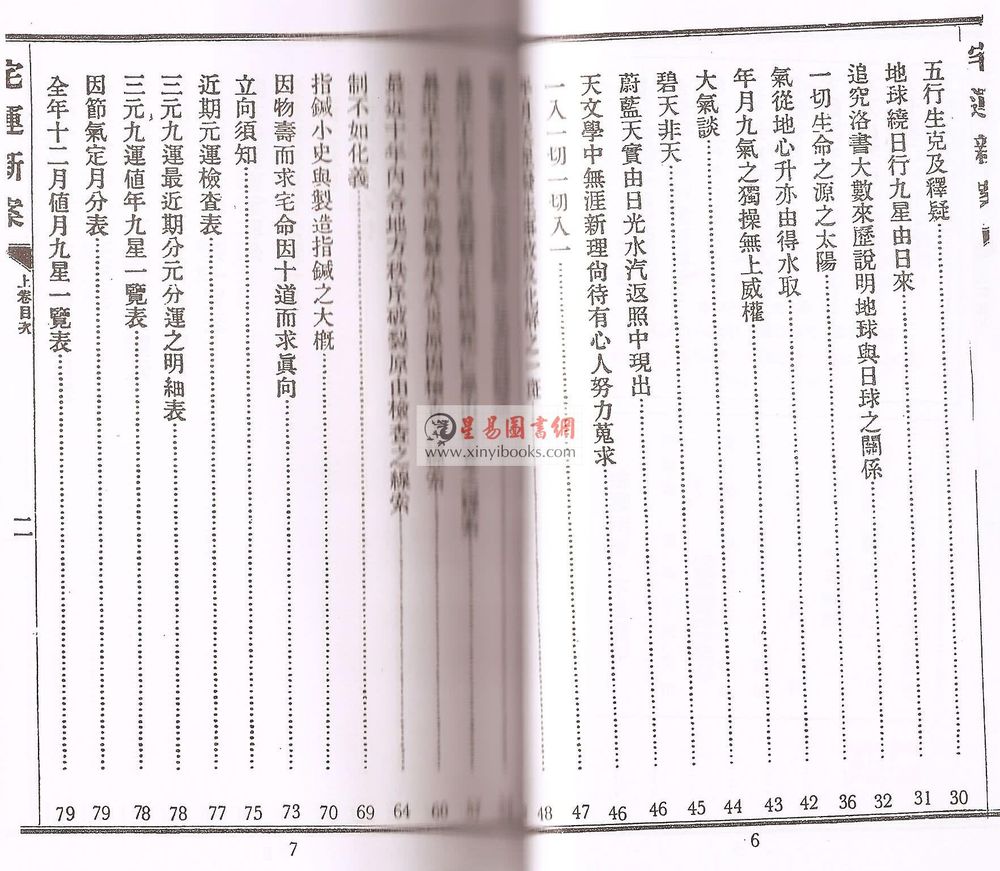 五行生克及釋疑……30
地球繞日行九星由日來……31
追究洛書大數來歷說明地球與日球之關係……32
一切生命之源之太陽……36
氣從地心升亦由得水取……42
年月九氣之獨操無上威權……43
大氣談……44
碧天非天……45
蔚藍天實由日光水汽返照中現出……46
天文學中無涯新理尙待有心人努力蒐求……46
一入一切一切入一……47
48
6
60
最近十年內各地方秩序破裂原由檢查之線索……64
制不如化義……69
指鍼小史與製造指鍼之大槪……70
因物壽而求宅命因十道而求眞向……73
立向須知……75
近期元運檢查表……77
三元九運最近期分元分運之明細表……78
三元九運値年九星一覽表……78
因節氣定月分表……79
全年十二月値月九星一覽表……79
宅運新案
上卷目次
二
7
星易圖書網
www.xinyibooks.com